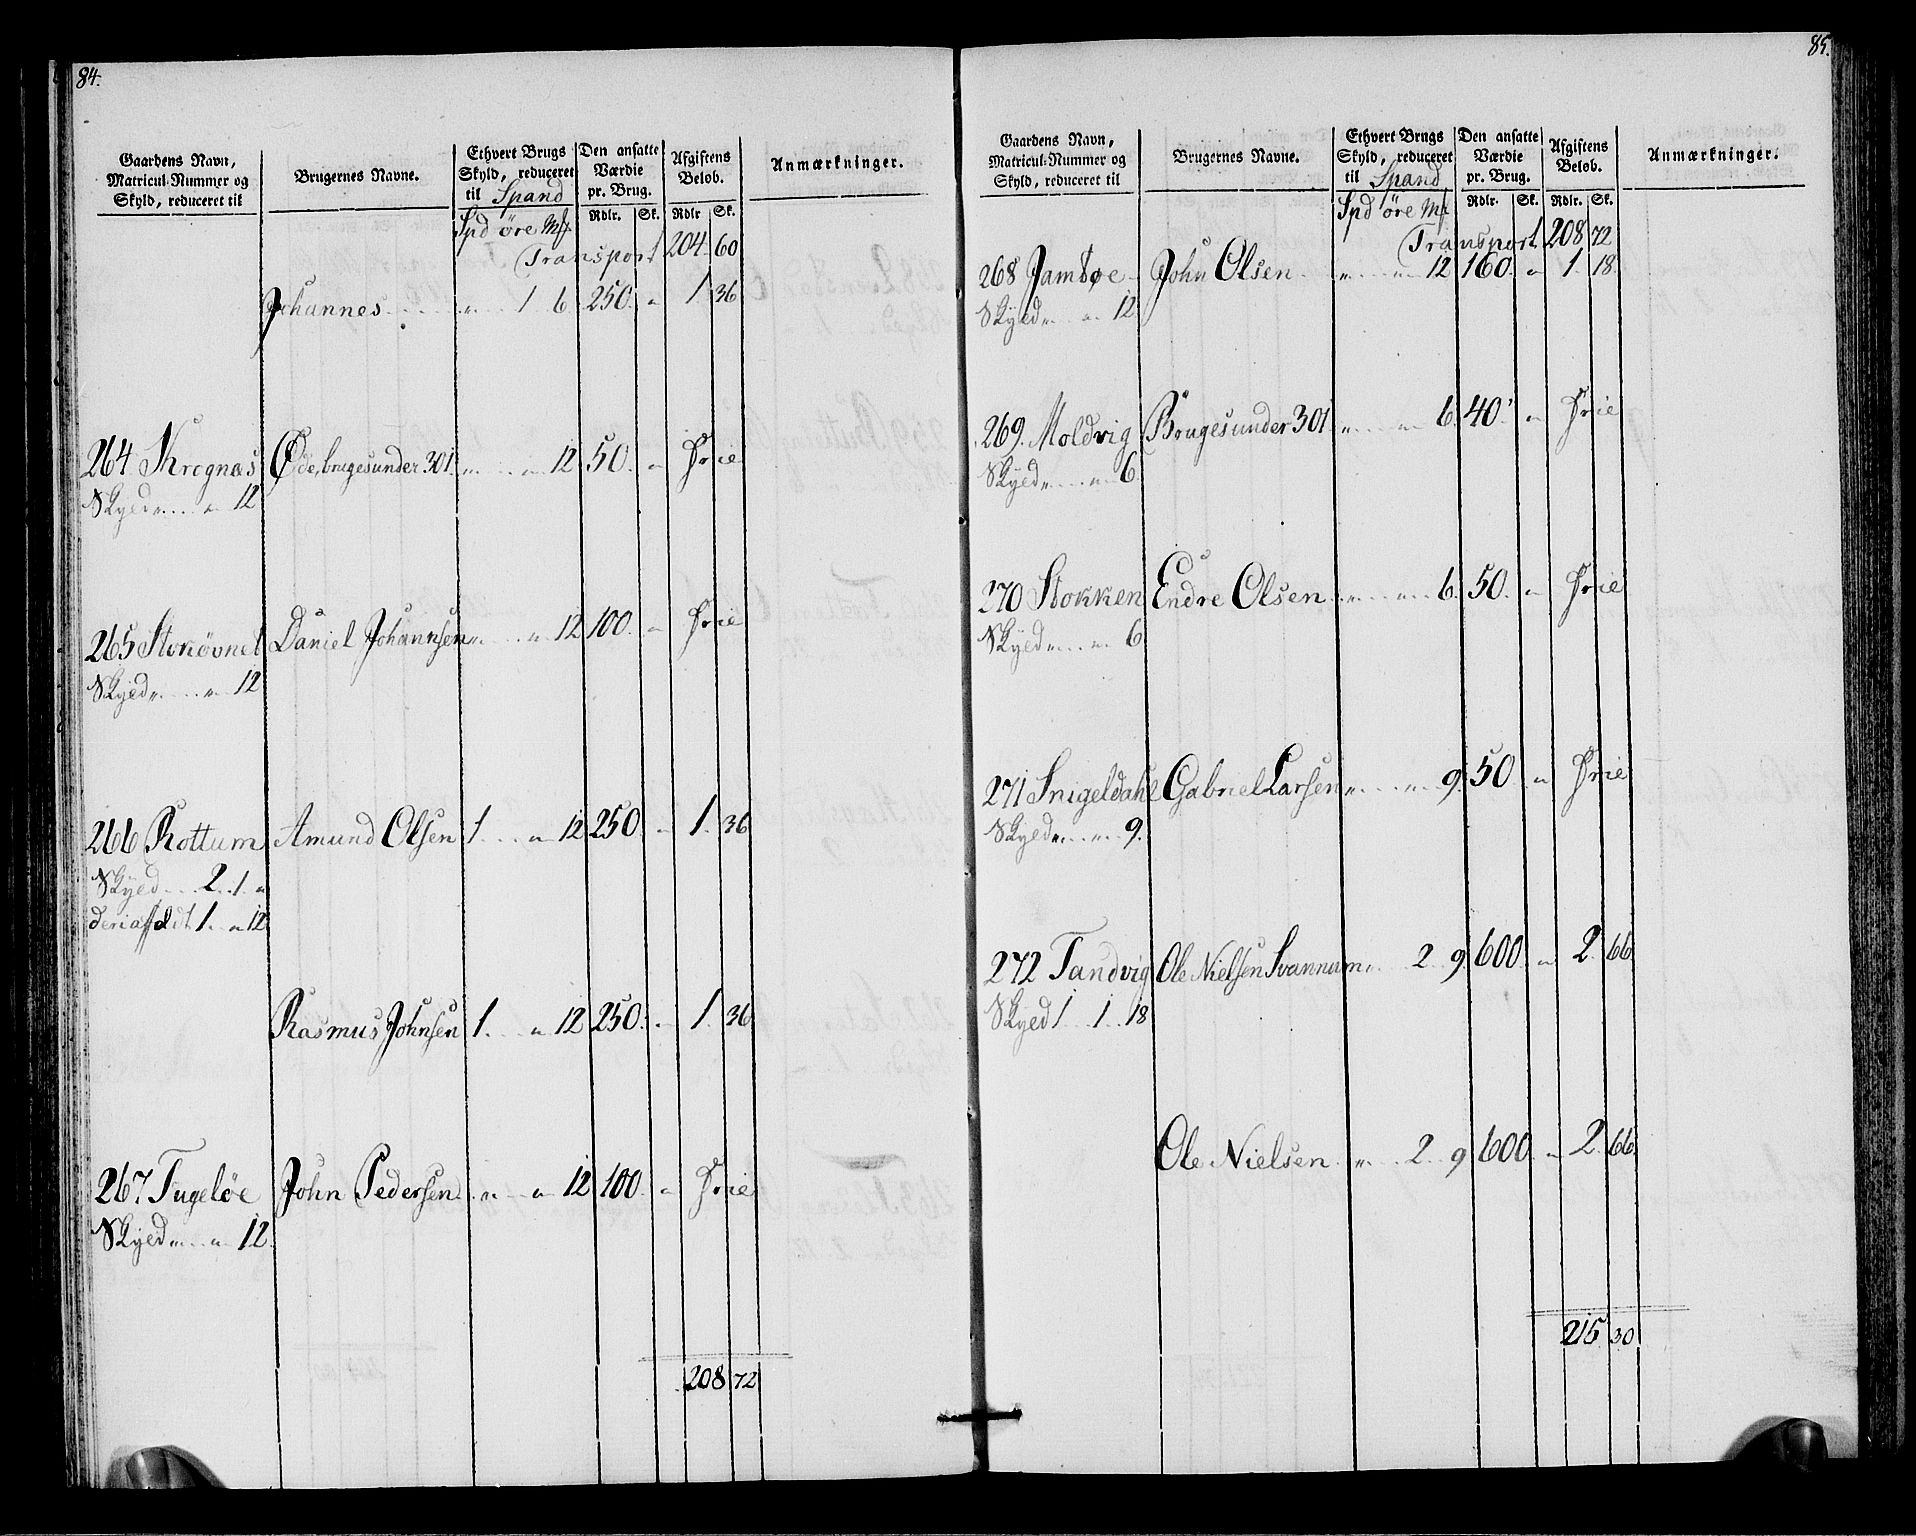 84.
Gaardens Navn, Matricul-Nummer og Skyld, reduceret til
Brugernes Navne.
Ethvert Brugs Skyld, reduceret til Spand
Den ansatte Værdie pr. Brug.
Afgiftens Beløb.
Anmærkninger.
Spd öre Mk Rdlr. Sk. Rdlr Sk.
Transport 204 60
Johannes " 1 6 250 " 1 36
264 Kregnæs Øde, bruges under 301. " " 12 50 " Frie
Skyld " " 12
265 Storövnet Daniel Johannsen " " 12 100 " Frie
Skyld " " 12
266 Rottum Amund Olsen 1 " 12 250 " 1. 36
Skyld 2 1 "
deraf 1 " 12
Rasmus Johnsen 1 " 12 250 " 1. 36
267 Fugelöe John Pedersen " " 12 100 " Frie
Skyld " " 12
208 72
85.
Gaardens Navn, Matricul-Nummer og Skyld, reduceret til
Brugernes Navne.
Ethvert Brugs Skyld, reduceret til Spand
Den ansatte Værdie pr. Brug.
Afgiftens Beløb.
Anmærkninger.
Spd öre Mk Rdlr. Sk. Rdlr. Sk.
Transport 208 72
268 Jamtøe John Olsen " " 12 160 " 1. 18
Skyld " " 12
269. Moldvig Bruges under 301 " " 6 40 " Frie
Skyld " " 6
270 Stokken Endre Olsen " " 6 50 " Frie
Skyld " " 6
271 Snigeldahl Gabriel Larsen " " 9 50 " Frie
Skyld " " 9.
272 Tandvig Ole Nielsen Svannum " 2 9 600 " 2 66
Skyld 1 1 18
Ole Nielsen " 2 9 600 " 2 66
215 30